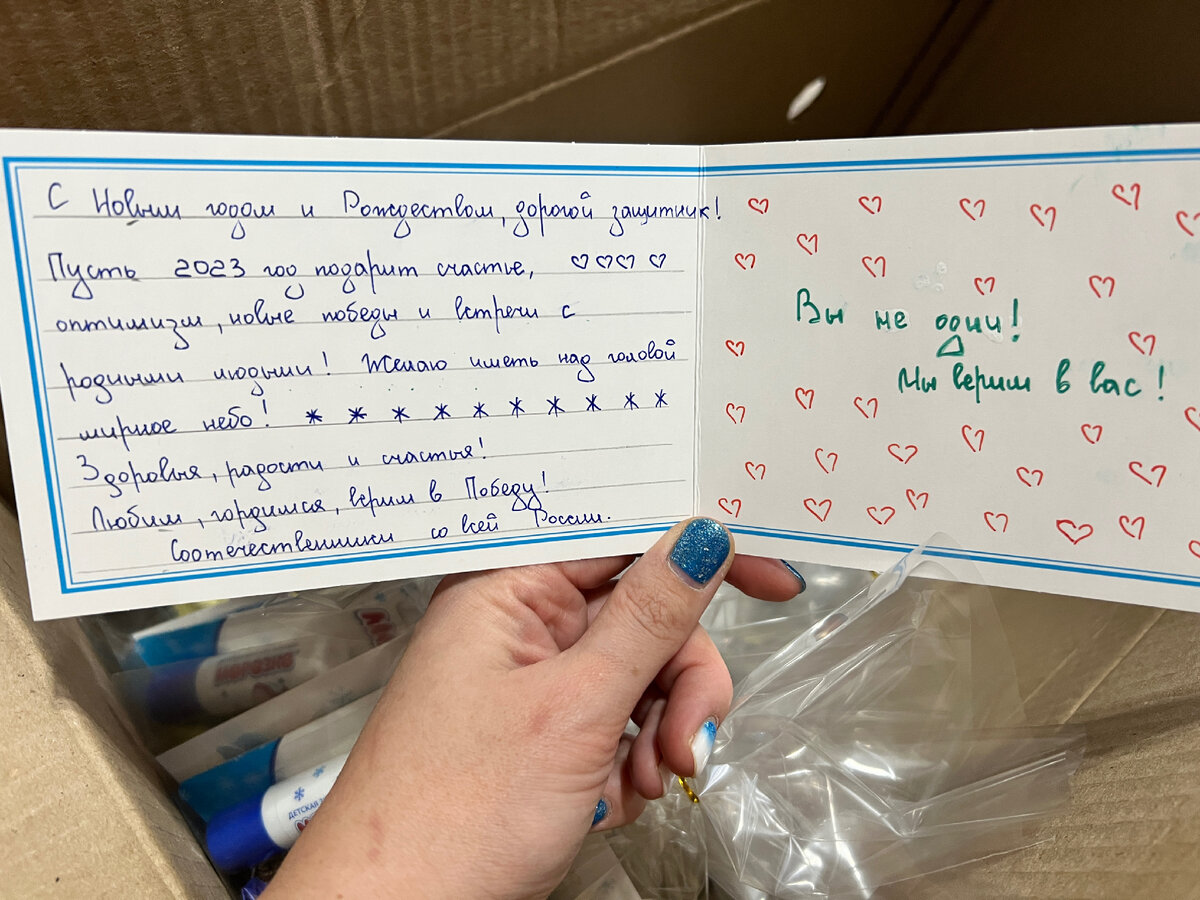 С Новым годом и Рождеством, дорогой защитник!
Пусть 2023 год подарит счастье,
оптимизм, новые победы и встречи с
родными людьми! Желаю иметь над головой
мирное небо!
Здоровья, радости и счастья!
Любим, гордимся, верим в Победу!
Соотечественники со всей России.
Вы не одни!
Мы верим в вас!
ДЕТСКАЯ